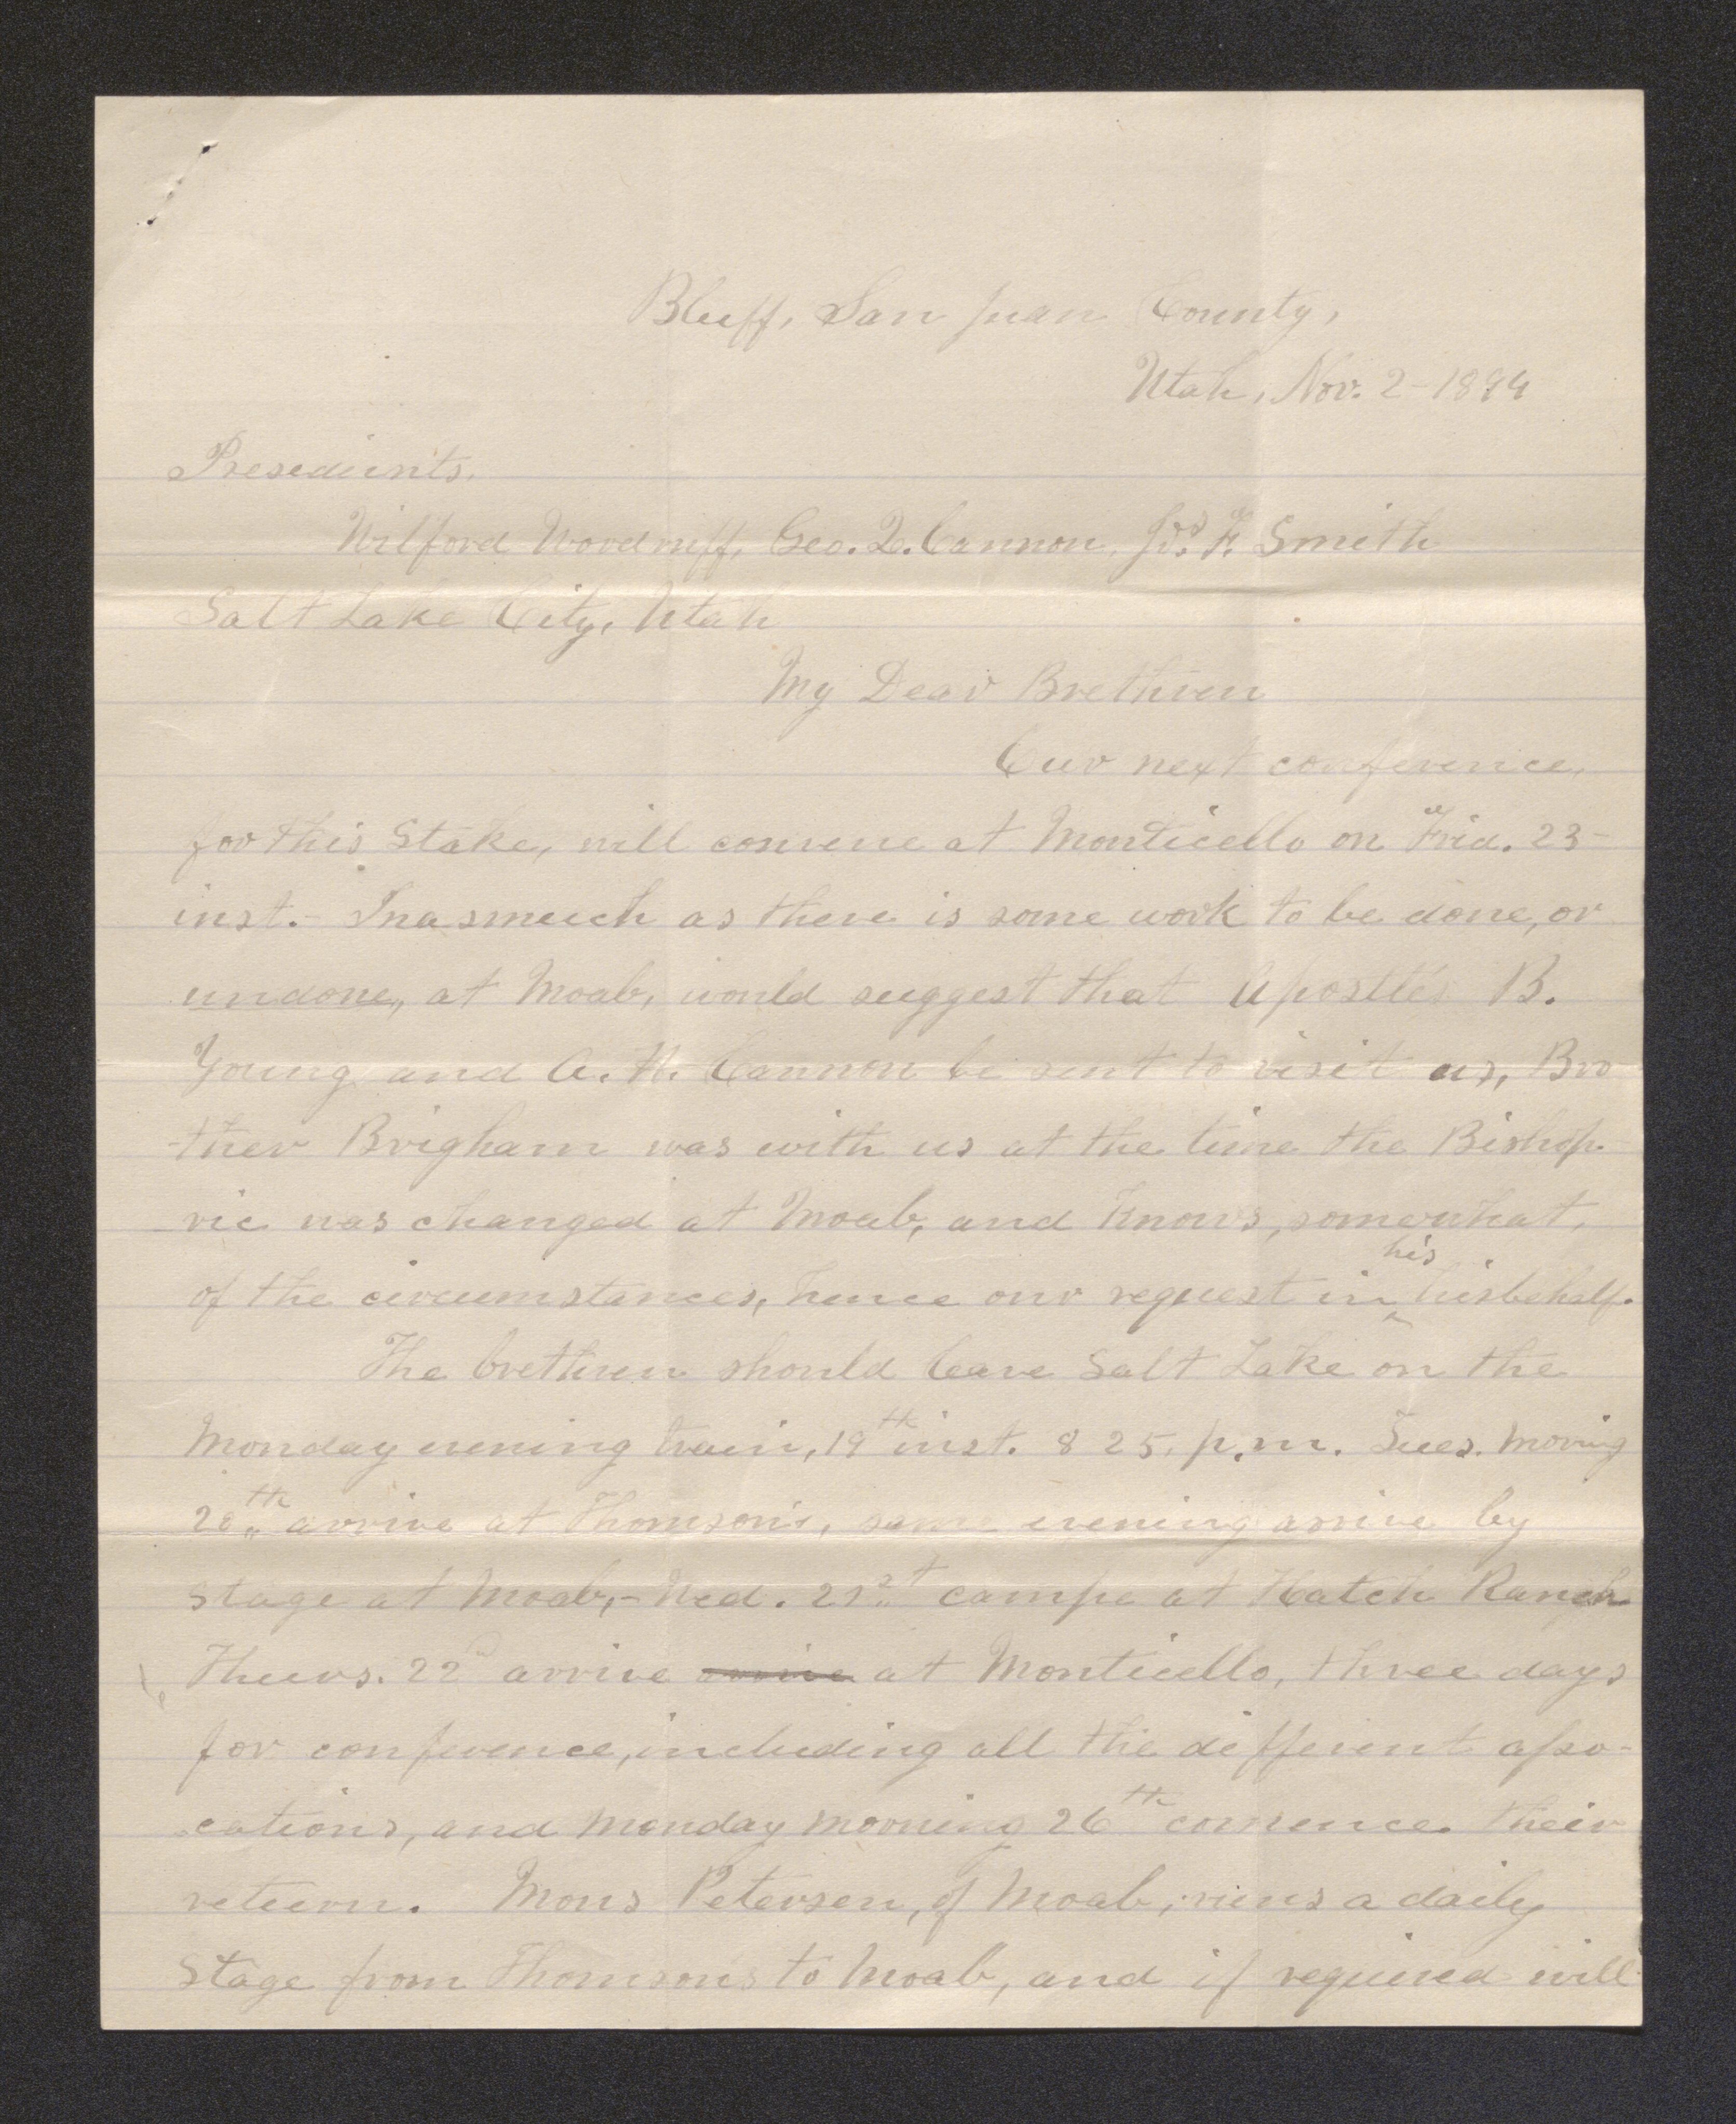 Bluff, San Juan County,
Utah, Nov. 2-1894
Presedients.
Wilford Woodruff, Geo. Q. Cannon, Jos. F. Smith
Salt Lake City, Utah
My Dear Brethren
Our next conference,
for this Stake, will convene at Monticello on Frid. 23-
inst.- Inasmuch as there is some work to be done, or
undone, at Moab, would suggest that Apostles B.
Young and A. H. Cannon be sent to visit us, Bro
-ther Brigham was with us at the time the Bishop-
-ric was changed at Moab, and knows, somewhat,
of the circumstances, hence our request in his behalf.
The brethren should leave Salt Lake on the
Monday evening train, 19th inst. 8 25. p.m. Tues. moring
20th arrive at Thomson's, same evening arrive by
stage at Moab,- Wed. 21st campe at Hatch Ranch
Thurs. 22 arrive arrive at Monticello, three days
for conference, including all the different asso-
-cations, and Monday morning 26th comence their
return. Mons Petersen, of Moab, runs a daily
stage from Thomsons to Moab, and if required will